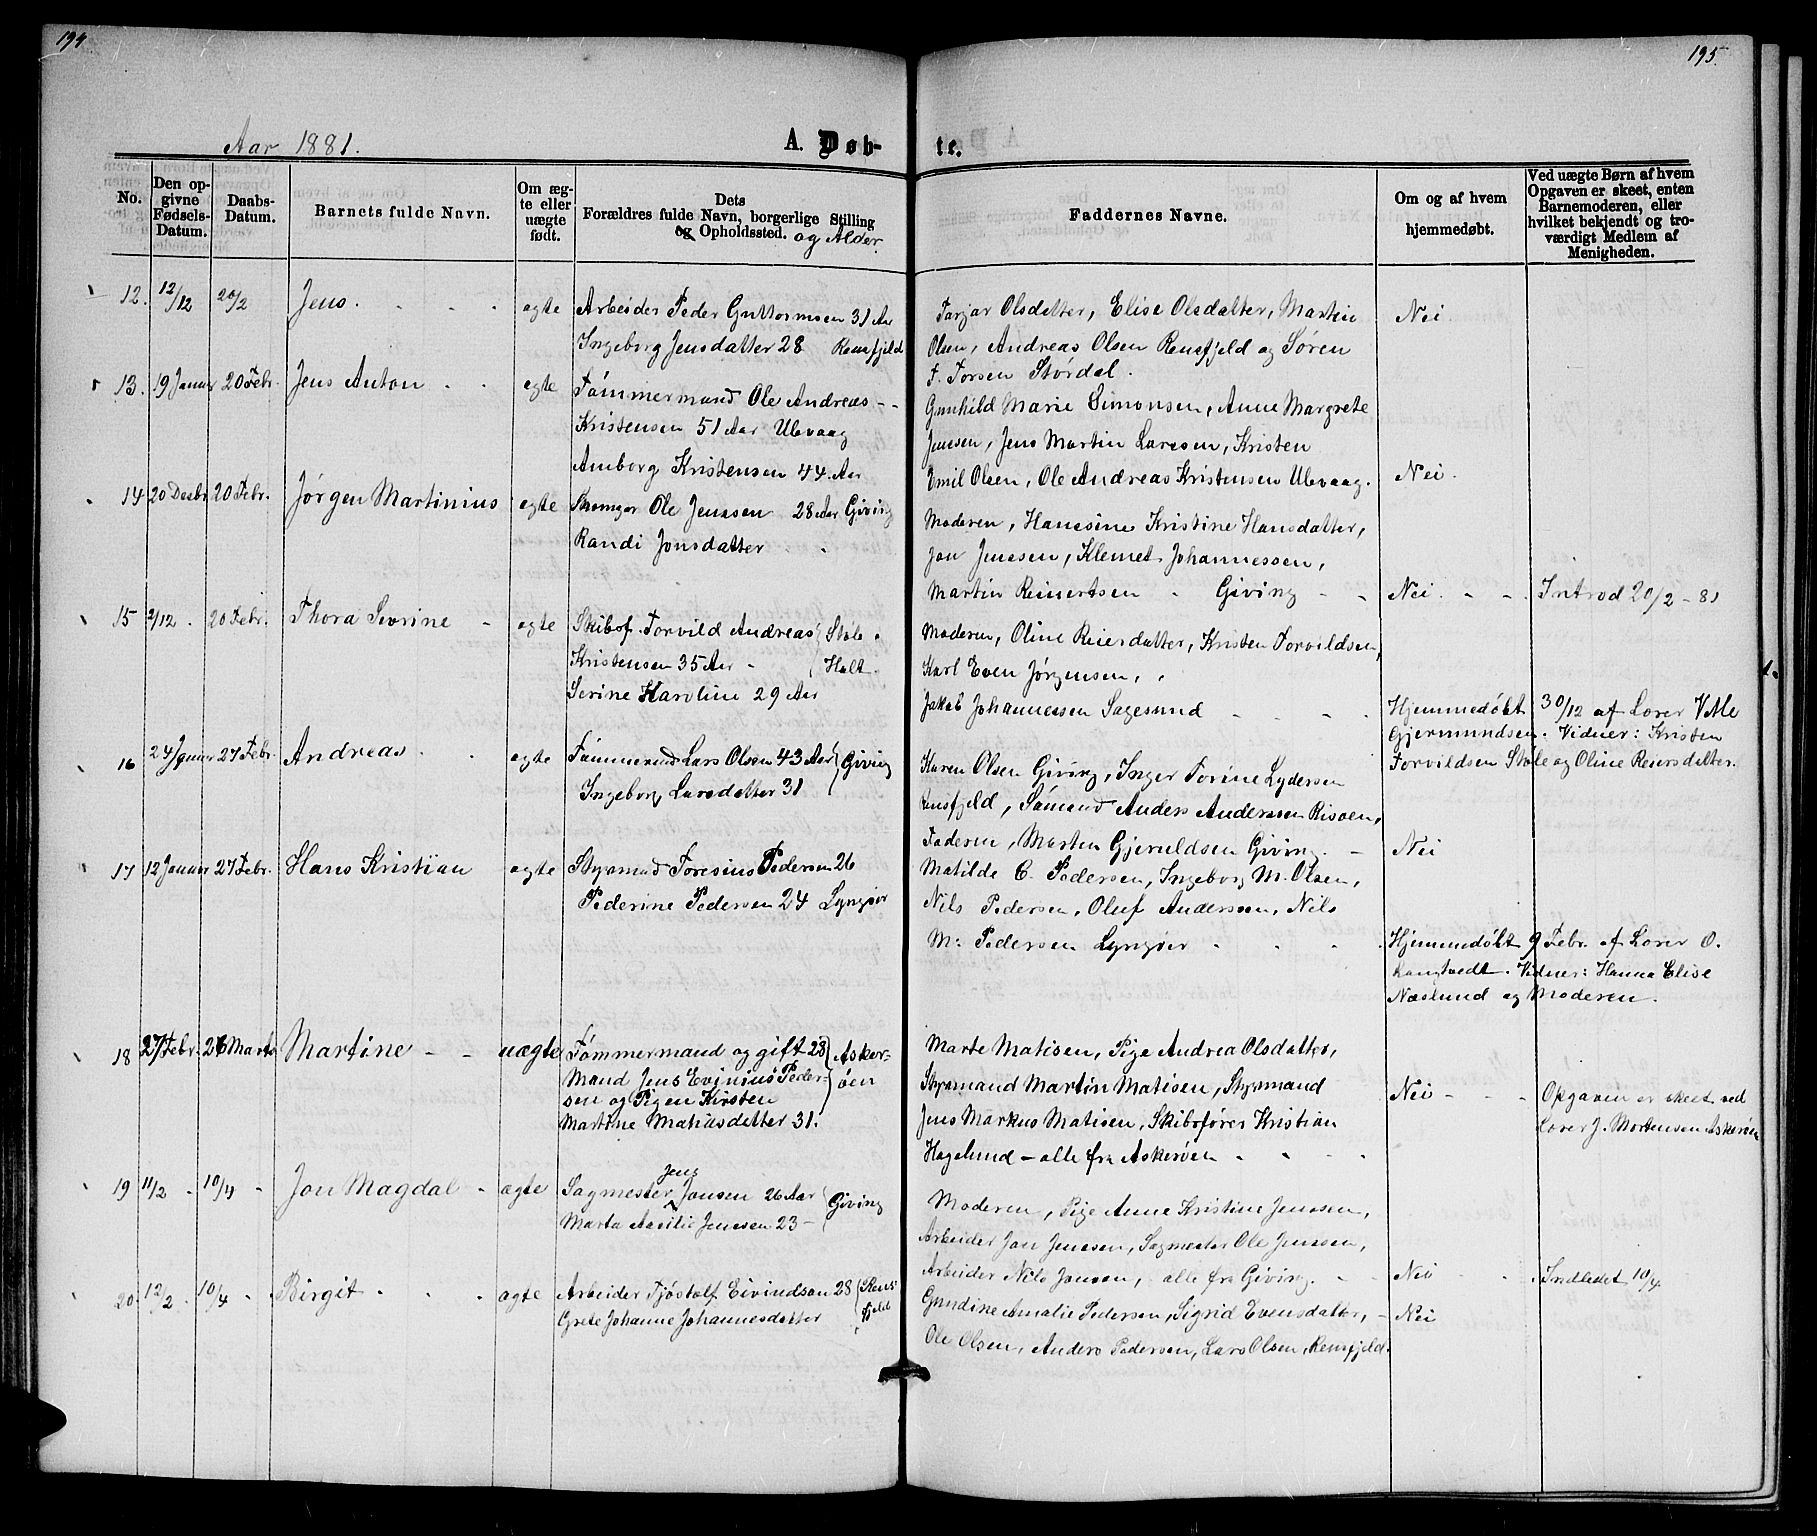 194
195.
Aar 1881.
A. Døb-
te.
No.
Den op-
givne
Fødsels-
Datum.
Daabs-
Datum.
Barnets fulde Navn.
Om æg-
te eller
uægte
født.
Dets
Forældres fulde Navn, borgerlige Stilling
og Opholdssted. og Alder.
Faddernes Navne.
Om og af hvem
hjemmedøbt.
Ved uægte Børn af hvem
Opgaven er skeet, enten
Barnemoderen, eller
hvilket bekjendt og tro-
værdigt Medlem af
Menigheden.
12. 12/12 20/2 Jens. ægte
Arbeider Peder Guttormsen 31 Aar
Ingeborg Jensdatter 28 Rensfjeld
Tarjar Olsdatter, Elise Olsdatter, Martin
Olsen, Andreas Olsen Rensfjeld og Søren
F. Torsen Stordal.
Nei.
13. 19 Januar 20 Febr. Jens Anton ægte
Tømmermand Ole Andreas -
Kristensen 51 Aar Ulevaag
Amborg Kristensen 44 Aar
Gunhild Marie Simonsen, Anne Margrete
Jensen, Jens Martin Larssen, Kristen
Emil Olsen, Ole Andreas Kristensen Ulevaag.
Nei.
14 20 Decbr 20 Febr. Jørgen Martinius ægte
Ole Jenssen 28 Aar Giving
Randi Jonsdatter
Moderen, Hansine Kristine Hansdatter,
Jon Jenssen, Klemet Johannessen,
Martin Reinertsen - Giving - -
Nei. - - Introd 20/2 - 81
15 2/12 20 Febr. Thora Sevrine - ægte
Skibsf. Torvild Andreas Støle
Kristensen 35 Aar - Holt.
Serine Karoline 29 Aar
Moderen, Oline Reiersdatter, Kristen Torvildsen,
Karl Even Jørgensen,
Jakob Johannessen Sagesund
Hjemmedøbt 30/12 af Lærer Vetle
Gjermundsen. Vidner: Kristen
Torvildsen Støle og Oline Reiersdatter.
16 24 Januar 27 Febr. Andreas ægte
Tømmermd Lars Olsen 43 Aar Giving
Ingeborg Larsdatter 31
Karen Olsen Giving, Inger Torine Lydersen
Rensfjeld, Sømand Anders Anderssen Risøen,
Faderen, Morten Gjeruldsen Giving. -
Nei
17 12 Januar 27 Febr. Hans Kristian ægte
Styrmand Toresius Pedersen 26
Pederine Pedersen 24 Lyngør
Matilde C. Pedersen, Ingeborg M. Olsen,
Nils Pedersen, Oluf Anderssen, Nils
M: Pedersen Lyngør
Hjemmedøbt 9 Febr. af Lærer O.
Langtvedt. Vidner: Hanna Elise
Næslund og Moderen.
18 27 Febr. 26 Marts Martine - - uægte
Tømmermand og gift 28 Asker-
Mand Jens Evinius Peder- øen
sen og Pigen Kirsten
Martine Matiasdatter 31.
Marte Matisen, Pige Andrea Olsdatter,
Styrmand Martin Matisen, Styrmand
Jens Markus Matisen, Skibsfører Kristian
Hagelund - alle fra Askerøen
Nei - - - Opgaven er skeet ved
Lærer J. Mortensen Askerøen
19 11/2 - 10/4 - Jon Magdal - ægte
Jens
Sagmester Jonsen 26 Aar Giving
Marta Aasilie Jenssen 23 -
Moderen, Pige Anne Kristine Jenssen,
Arbeider Jon Jenssen, Sagmester Ole Jenssen,
Arbeider Nils Jonsen, alle fra Giving. -
Nei - Indledet 10/4
20. 12/2 10/4 - Birgit ægte
Arbeider Tjøstolf Eivindsøn 28 Rens-
Grete Johanne Johannesdatter fjeld
Gundine Amalie Pedersen, Sigrid Evensdatter, -
Ole Olsen, Anders Pedersen, Lars Olsen, Rensfjeld.
Nei